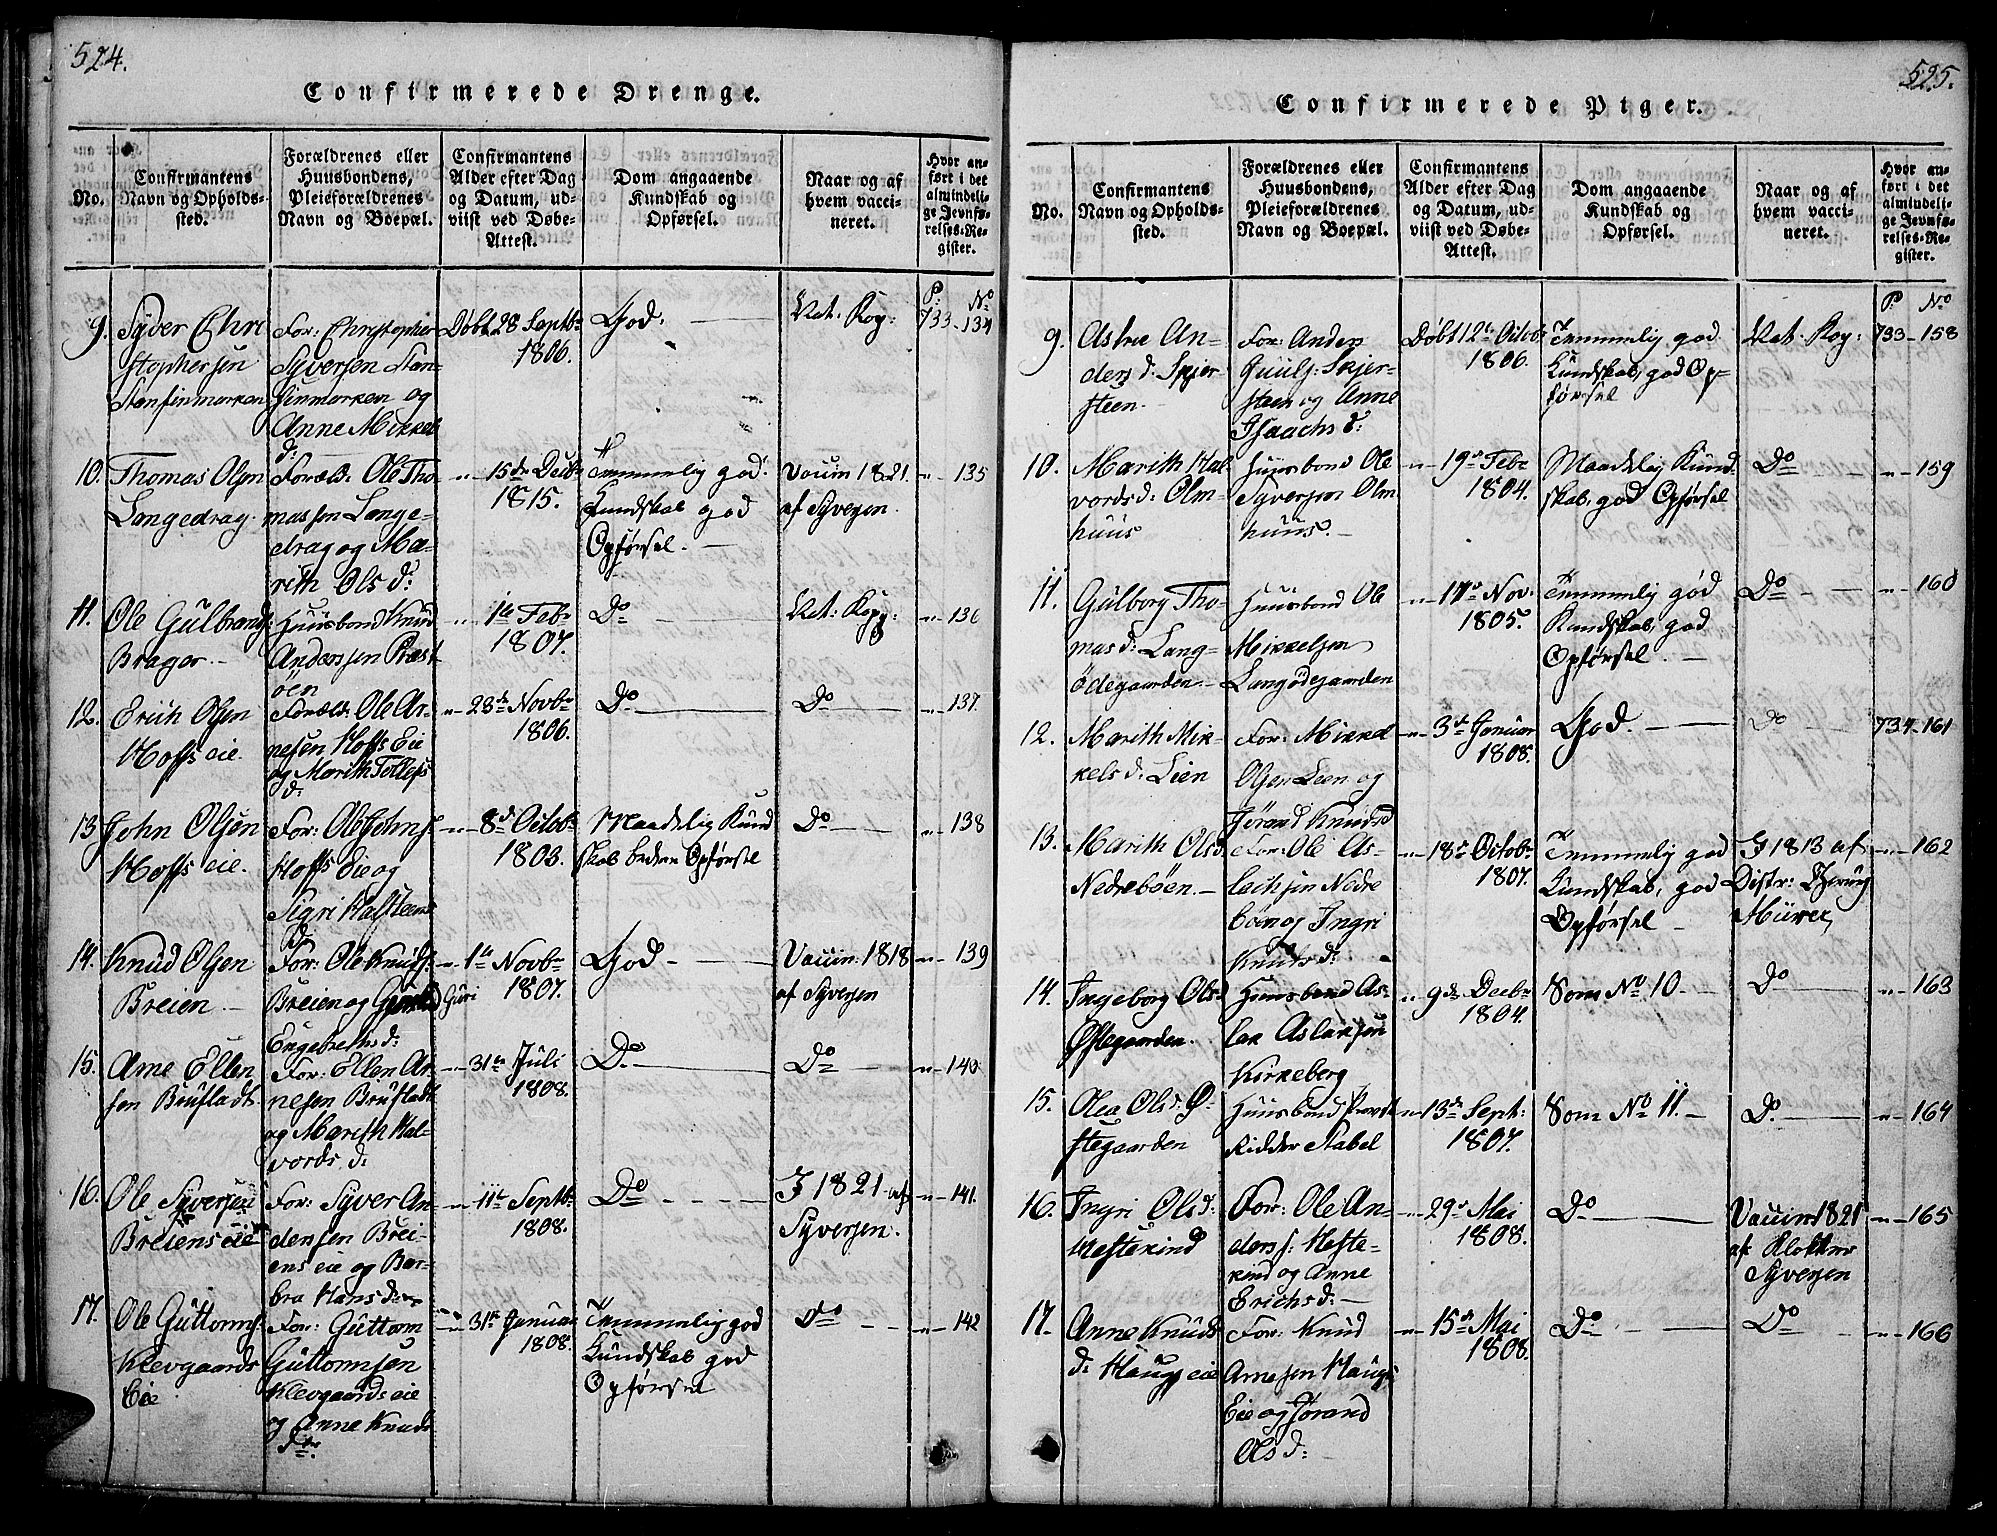 524.
Confirmerede Drenge.
No.
Confirmantens
Navn og Opholds-
sted.
Forældrenes eller
Huusbondens,
Pleieforældrenes
Navn og Boepæl.
Confirmantens
Alder efter Dag
og Datum, ud-
viist ved Døbe-
Attest.
Dom angaaende
Kundskab og
Opførsel.
Naar og af
hvem vacci-
neret.
Hvor an-
ført i det
almindeli-
ge Jevnfø-
relses-Re-
gister.
P. No
9. Syver Chri
stophersen
For: Christopher
Syversen
Anne Mikkel
d:
Døbt 28 Septbr
1806.
God.
Nat. Kop:
733-134
10. Thomas Olsen
Langedrag.
Foræld: Ole Tho-
massen Lange-
drag og Ma-
rith Ols d:
" 15de Decbr
1815.
Temmelig god
Kundskab god
Opførsel.
Vaccin 1821.
af Syversen.
" 135
11. Ole Gulbrands:
Brager
Huusbond Knud
Anderssen Præst
öen
" 16 Febr
1807.
Do
Nat: Kop:
" 136
12. Erich Olsen
Hoffs eie.
Foræld: Ole Ar-
nesen Hoffs Eie
og Marith Tollefs
d:
" 28de Novbr
1806.
Do
Do
" 137.
13 John Olsen
Hoffs eie.
For: Ole Johns:
Hoffs Eie og
Sigri
d:
" 8d Octobr
1803.
Maadelig Kund
skab bedre Opførsel
Do
" 138
14. Knud Olsen
Breien
For: Ole Knuds:
Breien og Guri
Engebrethsd:
" 1te Novbr
1807.
God
Vaccin: 1818
af Syversen
" 139
15. Arne Ellen
sen Brufladt.
For: Ellen Ar-
nesen Brufladt
og Marith Hal-
vords d:
" 31te Juli
1808.
Do
Do
" 140
16. Ole Syversen
Breiens eie
For: Syver An
dersen Brei-
ens eie og Bar-
bra Hans d:
" 11te Septbr
1808.
Do
I 1821 af
Syversen.
" 141.
17. Ole Guttorms:
Klevgaards
Eie
For: Guttorm
Guttormsen
Klevgaards eie
og Anne Knuds
dtr
" 31te Januar
1808.
Temmelig god
Kundskab god
Opførsel
Do
" 142
525.
Confirmerede Piger.
No.
Confirmantens
Navn og Opholds-
sted.
Forældrenes eller
Huusbondens,
Pleieforældrenes
Navn og Boepæl.
Confirmantens
Alder efter Dag
og Datum, ud-
viist ved Døbe-
Attest.
Dom angaaende
Kundskab og
Opførsel.
Naar og af
hvem vacci-
neret.
Hvor an-
ført i det
almindeli-
ge Jevnfø-
relses-Re-
gister.
P. No
9. Astrie An-
ders d: Skjer-
steen
For: Anders
Guulb: Skjer-
steen og Anne
Isaachs d:
Døbt 12te Octob:
1806.
Temmelig god
Kundskab, god Op-
førsel
Nat. Kop:
733-158
10. Marith Hal
vords d: Olm
huus
Huusbond Ole
Syversen Olm
huus.
" 19de Febr
1804.
Maadelig Kund
skab, god Opførsel
Do
" 159
11. Gulborg Tho-
mas d: Lang-
ödegaarden
Huusbond Ole
Mikkelsen
Langödegaarden
" 17de Nov:
1805.
Temmelig god
Kundskab, god
Opførsel.
Do
" 160
12. Marith Mik-
kels d: Lien
For: Mikkel
Olsen Leen og
Jörand Knudsd
" 3de Januar
1808.
God.
Do
734-161
13. Marith Olsd.
Nedreböen.
For: Ole As-
lachsen Nedre
böen og Ingri
Knuds d:
" 18de Octobr
1807.
Temmelig god
Kundskab, god
Opførsel
I 1813 af
Distr: Chirurg
Mürer
" 162
14. Ingeborg Olsd
Østegaarden.
Huusbond As-
lak Aslaksen
Kirkeberg
" 9de Decbr
1804.
Som No 10
Do
" 163
15. Olea Olsd. Ø-
stegaarden
Huusbond Provst
Ridder Nabel
" 13de Sept:
1807.
Som No 11.
Do.
" 164
16. Ingri Olsd:
Hestekind
For: Ole An-
ders: Heste-
kind og Anne
Erichs d:
" 29de Mai
1808.
Do
Vaccin 1821
af Klokker
Syversen
" 165
17. Anne Knuds
d: Haugs eie
For: Knud
Arnesen Haugs
Eie og Jörand
Ols d:
" 15de Mai
1808.
Do
Do
" 166